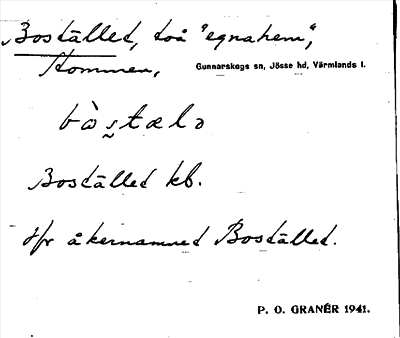 Boställed, två "egnahem",
Kommen, Gunnarskogs sn, Jösse hd, Värmlands l.
bo̱̊stælə
Boställed kb.
Jfr åkernamned Boställed.
P. O. GRANÉR 1941.